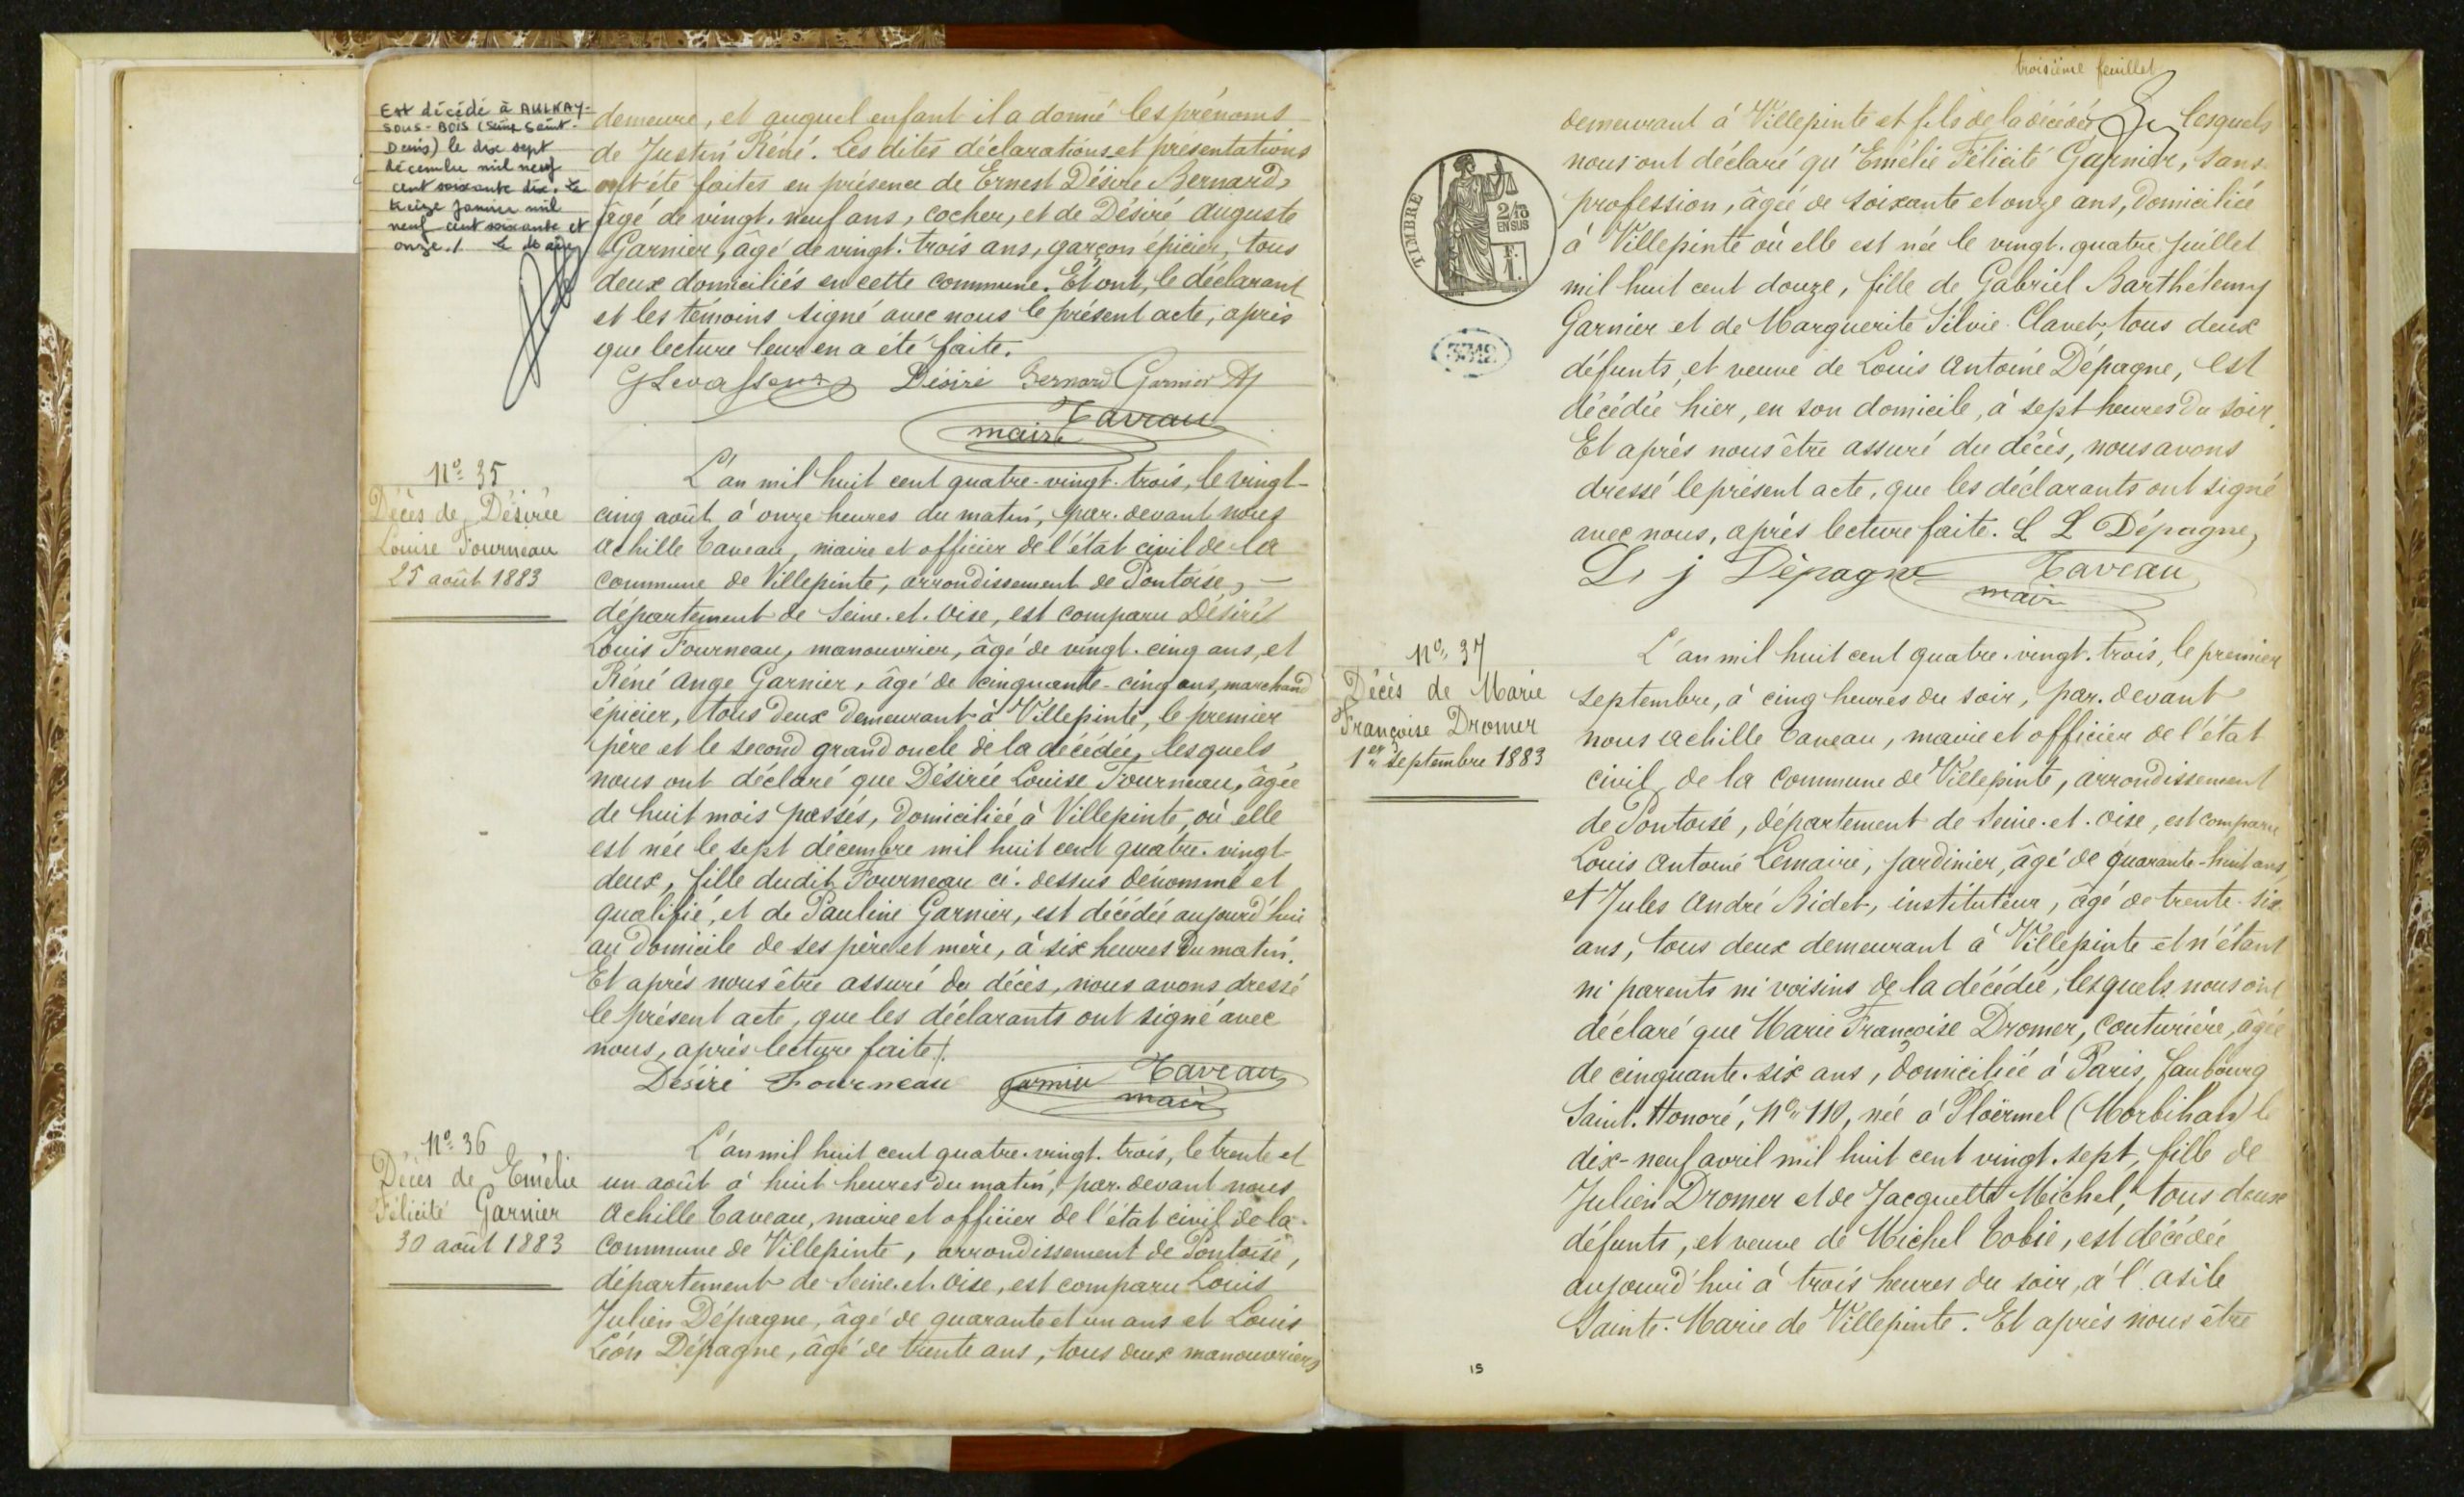 Est décédé à AULNAY-
SOUS-BOIS (Seine Saint-
Denis) le dix sept
décembre mil neuf
cent soixante dix. Le
treize janvier mil
neuf cent soixante et
onze./. Le Maire
demeure, et auquel enfant il a donné les prénoms
de Justin Réné. Les dites déclarations et présentations
ont été faites en présence de Ernest Désiré Bernard,
âgé de vingt-neuf ans, cocher, et de Désiré Auguste
Garnier, âgé de vingt-trois ans, garçon épicier, tous
deux domiciliés en cette commune. Et ont, le déclarant
et les témoins signé avec nous le présent acte, après
que lecture leur en a été faite.
G Levasseur Désiré Bernard Garnier
Taveau
maire
N° 35
Décès de Désirée
Louise Fourneau
25 août 1883
L'an mil huit cent quatre-vingt-trois, le vingt-
cinq août à onze heures du matin, par-devant nous
Achille Taveau, maire et officier de l'état civil de la
commune de Villepinte, arrondissement de Pontoise,
département de Seine-et-Oise, est comparu Désiré
Louis Fourneau, manouvrier, âgé de vingt-cinq ans, et
Réné Ange Garnier, âgé de cinquante-cinq ans, marchand
épicier, tous deux demeurant à Villepinte, le premier
père et le second grand oncle de la décédée, lesquels
nous ont déclaré que Désirée Louise Fourneau, âgée
de huit mois passés, domiciliée à Villepinte, où elle
est née le sept décembre mil huit cent quatre-vingt-
deux, fille dudit Fourneau ci-dessus dénommé et
qualifié, et de Pauline Garnier, est décédée aujourd'hui
au domicile de ses père et mère, à six heures du matin.
Et après nous être assuré du décès, nous avons dressé
le présent acte, que les déclarants ont signé avec
nous, après lecture faite.
Désiré Fourneau Garnier Taveau
maire
N° 36
Décès de Emélie
Félicité Garnier
30 août 1883
L'an mil huit cent quatre-vingt-trois, le trente et
un août à huit heures du matin, par-devant nous
Achille Taveau, maire et officier de l'état civil de la
commune de Villepinte, arrondissement de Pontoise,
département de Seine-et-Oise, est comparu Louis
Julien Dépagne, âgé de quarante et un ans et Louis
Léon Dépagne, âgé de trente ans, tous deux manouvriers
troisième feuillet
demeurant à Villepinte et fils de la décédée lesquels
nous ont déclaré qu'Emélie Félicité Garnier, sans
profession, âgée de soixante et onze ans, domiciliée
à Villepinte où elle est née le vingt-quatre juillet
mil huit cent douze, fille de Gabriel Barthélemy
Garnier et de Marguerite Silvie Clavet, tous deux
défunts, et veuve de Louis Antoine Dépagne, est
décédée hier, en son domicile, à sept heures du soir.
Et après nous être assuré du décès, nous avons
dressé le présent acte, que les déclarants ont signé
avec nous, après lecture faite. L L Dépagne,
L j Dépagne Taveau
maire
TIMBRE
2/10
EN SUS
F.
1.
N° 37
Décès de Marie
Françoise Dromer
1er septembre 1883
L'an mil huit cent quatre-vingt-trois, le premier
septembre, à cinq heures du soir, par-devant
nous Achille Taveau, maire et officier de l'état
civil de la commune de Villepinte, arrondissement
de Pontoise, département de Seine-et-Oise, est comparu
Louis Antoine Lemaire, jardinier, âgé de quarante-huit ans,
et Jules André Bidet, instituteur, âgé de trente-six
ans, tous deux demeurant à Villepinte et n'étant
ni parents ni voisins de la décédée, lesquels nous ont
déclaré que Marie Françoise Dromer, couturière, âgée
de cinquante-six ans, domiciliée à Paris, faubourg
Saint-Honoré, N° 110, née à Ploërmel (Morbihan) le
dix-neuf avril mil huit cent vingt-sept, fille de
Julien Dromer et de Jacquette Michel, tous deux
défunts, et veuve de Michel Tobie, est décédée
aujourd'hui à trois heures du soir, à l'asile
Sainte-Marie de Villepinte. Et après nous être
15